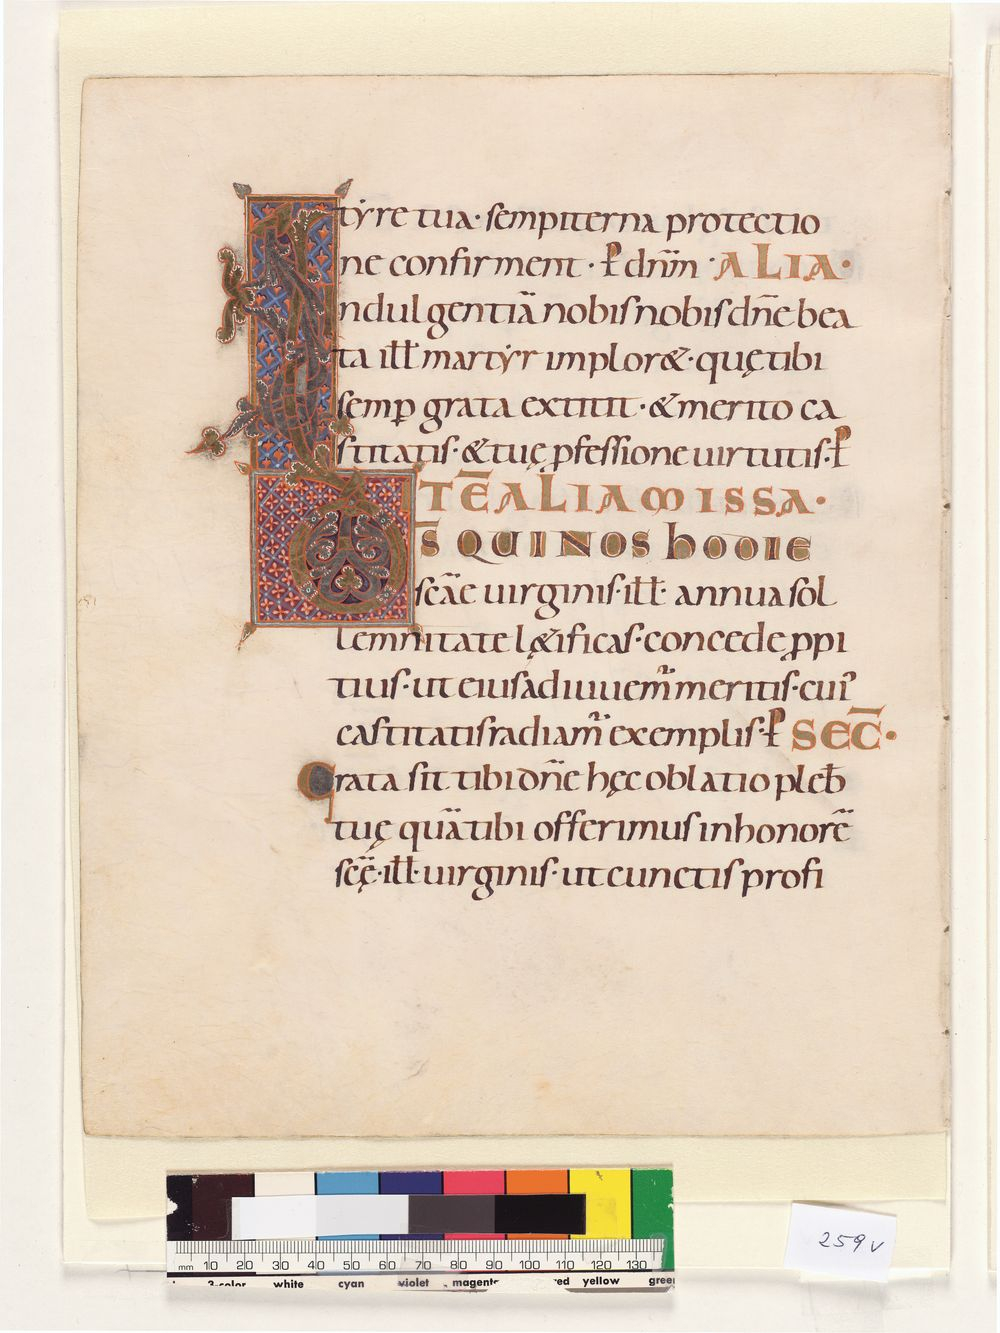 tyre tua· sempiterna protectio
ne confirment · ꝑ dnm̄ · ALIA·
Indulgentiā nobis nobis dn̄e bea
ta ill̄ martyr implor&· quę tibi
semꝑ grata extitit · & merito ca
stitatis· & tuę ꝓfessione uirtutis· ꝑ
ITĒ ALIA MISSA·
DS̄ QUI NOS hODIE
scāe uirginis· ill̄· annua sol
lemnitate l&ificas· concede ꝓpi
tius· ut eius adiuuem̄ meritis· cui'
castitatis radiam̄ exemplis· ꝑ SEC̄·
Grata sit tibi dn̄e hęc oblatio pleb̄
tuę quā tibi offerimus in honorē
scę̄· ill̄· uirginis· ut cunctis profi
mm 10 20 30 40 50 60 70 80 90 100 110 120 130
3-color white cyan violet magenta red yellow green
259v